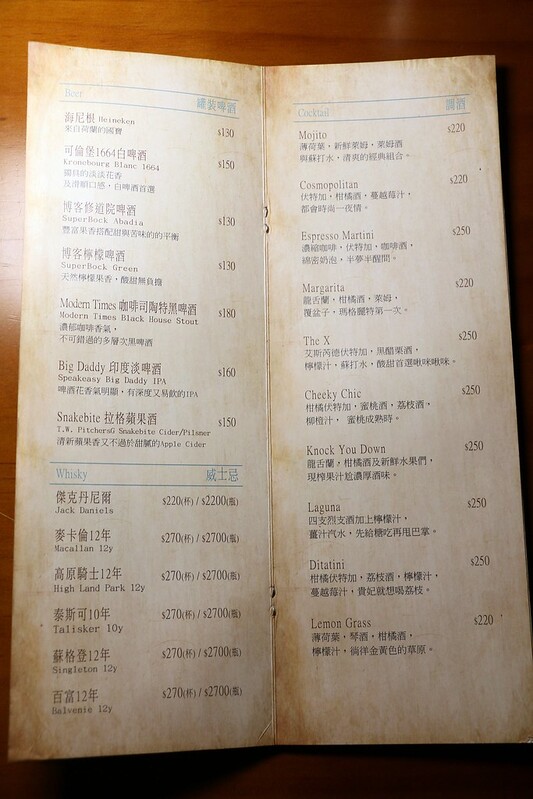 Beer 罐装啤酒
海尼根 Heineken $130
來自荷蘭的國寶
可倫堡1664白啤酒 $150
kronebourg Blanc 1664
獨具的淡淡花香
及滑順口感，白啤酒首選
博客修道院啤酒 $130
SuperBock Abadia
豐富果香搭配甜與苦味的的平衡
博客檸檬啤酒 $130
SuperBock Green
天然檸檬果香，酸甜無負擔
Modern Times 咖啡司陶特黑啤酒 $180
Modern Times Black House Stout
濃郁咖啡香氣，
不可錯過的多層次黑啤酒
Big Daddy 印度淡啤酒 $160
Speakeasy Big Daddy IPA
啤酒花香氣明顯，有深度又易飲的IPA
Snakebite 拉格蘋果酒 $150
T.W. PitchersG Snakebite Cider/Pilsner
清新蘋果香又不過於甜膩的Apple Cider
Whisky 威士忌
傑克丹尼爾 $220(杯) / $2200(瓶)
Jack Daniels
麥卡倫12年 $270(杯) / $2700(瓶)
Macallan 12y
高原騎士12年 $270(杯) / $2700(瓶)
High Land Park 12y
泰斯可10年 $270(杯) / $2700(瓶)
Talisker 10y
蘇格登12年 $270(杯) / $2700(瓶)
Singleton 12y
百富12年 $270(杯) / $2700(瓶)
Balvenie 12y
Cocktail 調酒
Mojito $220
薄荷葉，新鮮萊姆，萊姆酒
與蘇打水，清爽的經典組合。
Cosmopolitan $220
伏特加，柑橘酒，蔓越莓汁，
都會時尚一夜情。
Espresso Martini $250
濃縮咖啡，伏特加，咖啡酒，
綿密奶泡，半夢半醒間。
Margarita $220
龍舌蘭，柑橘酒，萊姆，
覆盆子，瑪格麗特第一次。
The X $250
艾斯芮德伏特加，黑醋栗酒，
檸檬汁，蘇打水，酸甜首選啾咪啾咪。
Cheeky Chic $250
柑橘伏特加，蜜桃酒，荔枝酒，
柳橙汁， 蜜桃成熟時。
Knock You Down $250
龍舌蘭，柑橘酒及新鮮水果們，
現榨果汁尬濃厚酒味。
Laguna $250
四支烈支酒加上檸檬汁，
薑汁汽水，先給糖吃再甩巴掌。
Ditatini $250
柑橘伏特加，荔枝酒，檸檬汁，
蔓越莓汁，貴妃就想喝荔枝。
Lemon Grass $220
薄荷葉，琴酒，柑橘酒，
檸檬汁，徜洋金黃色的草原。